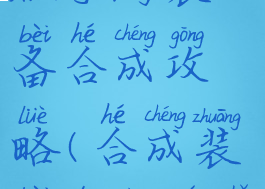 bèi hé chéng gōng
备合成攻
lüè hé chéng zhuāng
略(合成装